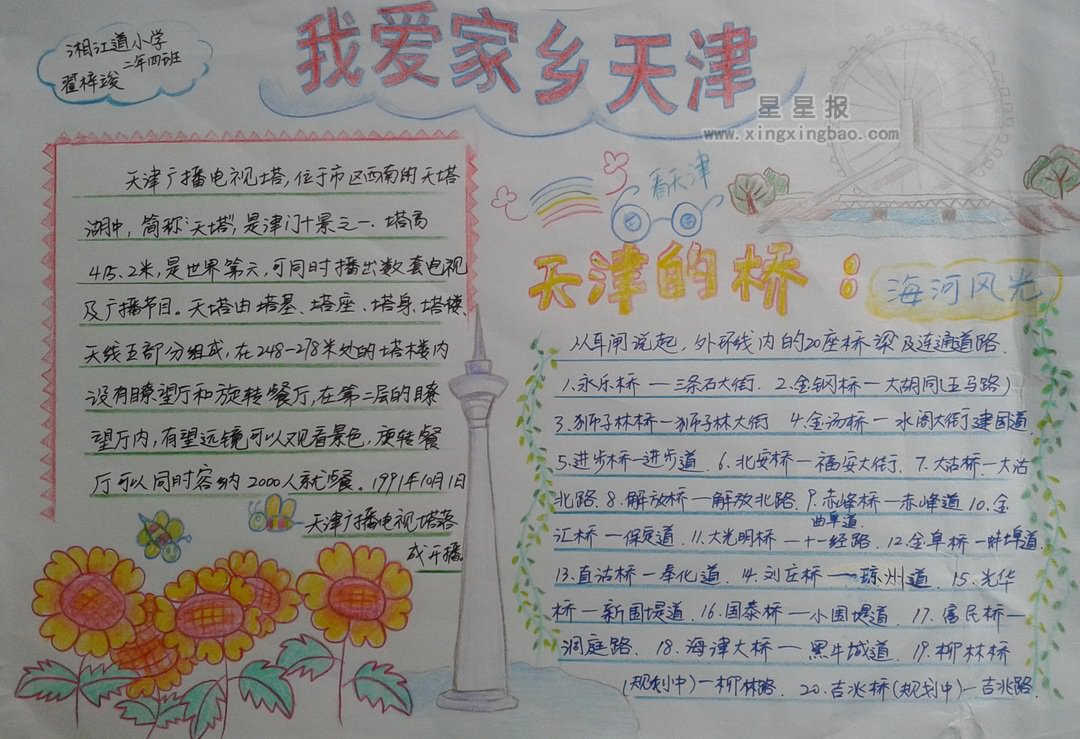 湘江道小学
二年四班
翟梓竣
我爱家乡天津
星星报
www.xingxingbao.com
看天津
天津广播电视塔,位于市区西南的天塔
湖中,简称“天塔”,是津门十景之一.塔高
415.2米,是世界第六,可同时播出数套电视
及广播节目。天塔由塔基、塔座、塔身、塔楼、
天线五部分组成,在248-278米处的塔楼内
设有瞭望厅和旋转餐厅,在第二层的瞭
望厅内,有望远镜可以观看景色,旋转餐
厅可以同时容纳2000人就餐.1991年10月1日
天津广播电视塔落
成开播。
天津的桥:海河风光
从耳闸说起,外环线内的20座桥梁及连通道路.
1.永乐桥—三条石大街 2.金钢桥—大胡同(五马路)
3.狮子林桥—狮子林大街 4.金汤桥—水阁大街建国道
5.进步桥—进步道.6.北安桥—福安大街.7.大沽桥—大沽
北路.8.解放桥—解放北路.9.赤峰桥—赤峰道10.金
汇桥—保定道.曲阜道11.大光明桥—十一经路.12.金阜桥—蚌埠道
13.直沽桥—奉化道.14.刘庄桥—琼州道.15.光华
桥—新围堤道.16.国泰桥—小围堤道.17.富民桥—
洞庭路.18.海津大桥—黑牛城道.19.柳林桥
(规划中)—柳林路.20.吉兆桥(规划中)—吉兆路.